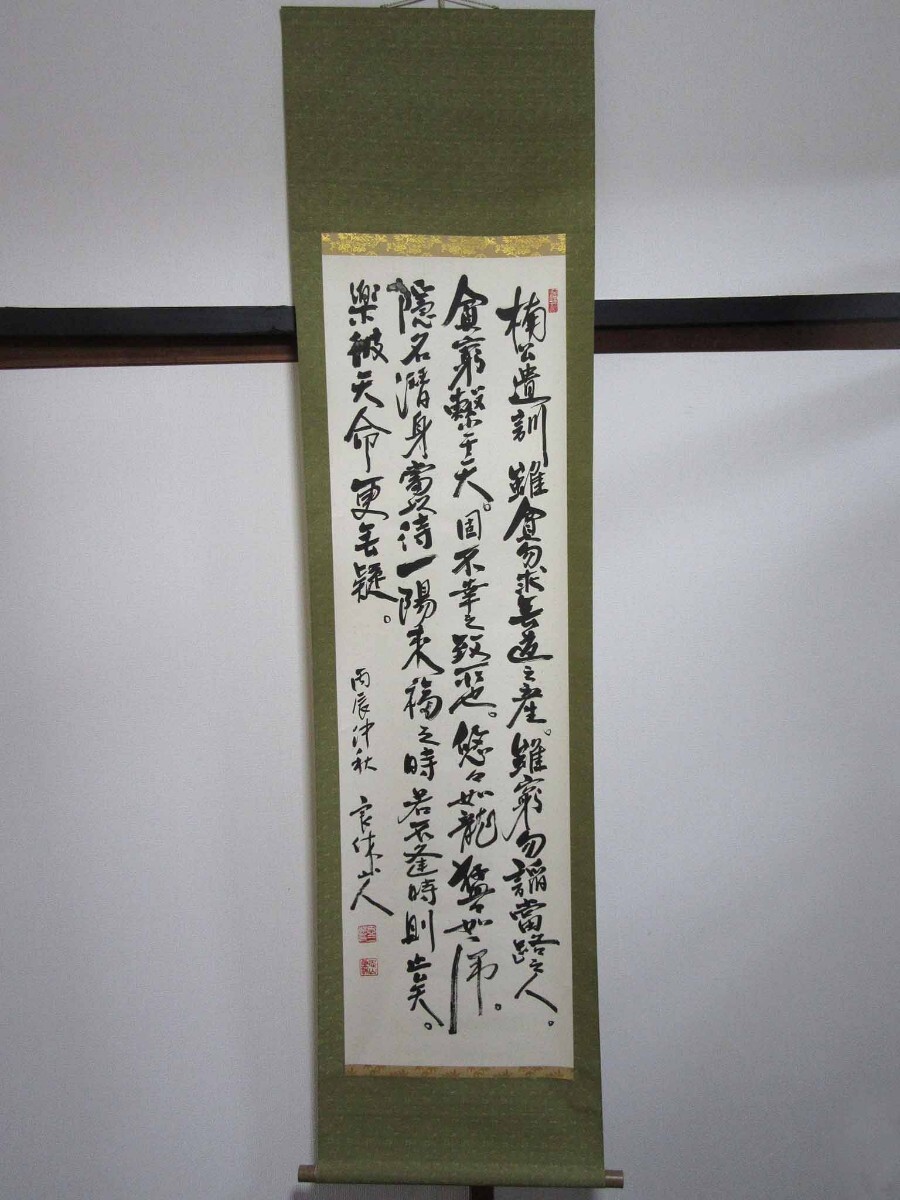 楠公遺訓 雖貧勿求無道之産。雖窮勿謟當路之人。
貧窮繫于天。固不幸之致所也。悠々如龍猛々如
隱名潛身當以待一陽来福之時若不逢時則止矣。
楽彼天命更無疑。
丙辰仲秋 山人